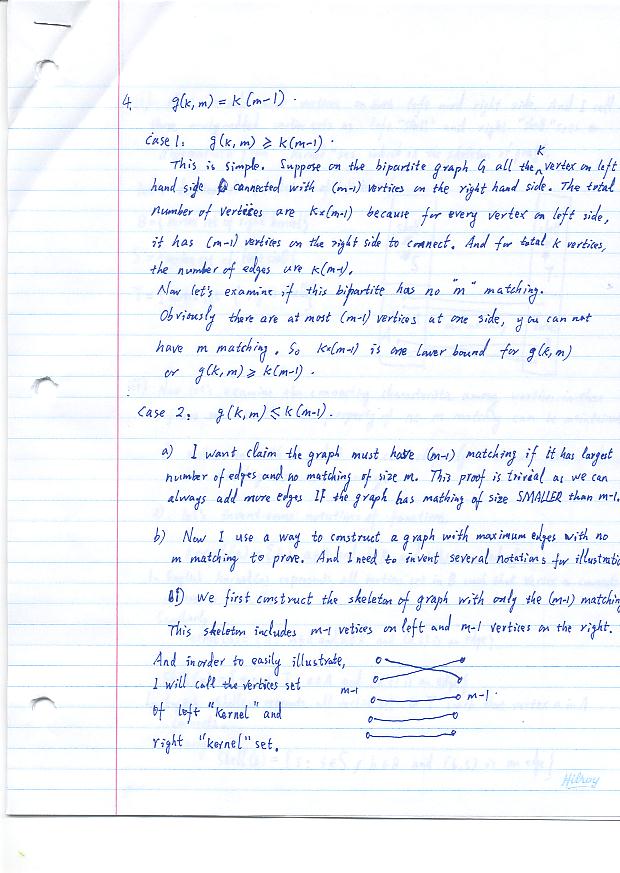 4. g(k,m) = k(m-1).
Case 1: g(k,m) ⩾ k(m-1).
K
This is simple. Suppose on the bipartite graph G all the ^ vertex on left
hand side connected with (m-1) vertices on the right hand side. The total
number of vertices are K×(m-1) because for every vertex on left side,
it has (m-1) vertices on the right side to connect. And for total k vertices,
the number of edges are k(m-1).
Now let's examine if this bipartite has no "m" matching.
Obviously there are at most (m-1) vertices at one side, you can not
have m matching. So K×(m-1) is one lower bound for g(k,m)
or g(k,m) ⩾ k(m-1).
Case 2: g(k,m) ⩽ k(m-1).
a) I want claim the graph must have (m-1) matching if it has largest
number of edges and no matching of size m. This proof is trivial as we can
always add more edges If the graph has mathing of size SMALLER than m-1.
b) Now I use a way to construct a graph with maximum edges with no
m matching to prove. And I need to invent several notations for illustratio
i) We first construct the skeleton of graph with only the (m-1) matching
This skeleton includes m-1 vetices on left and m-1 vertices on the right.
And inorder to easily illustrate,
I will call the vertices set
m-1
m-1.
of left "kernel" and
right "kernel" set.
Hilroy